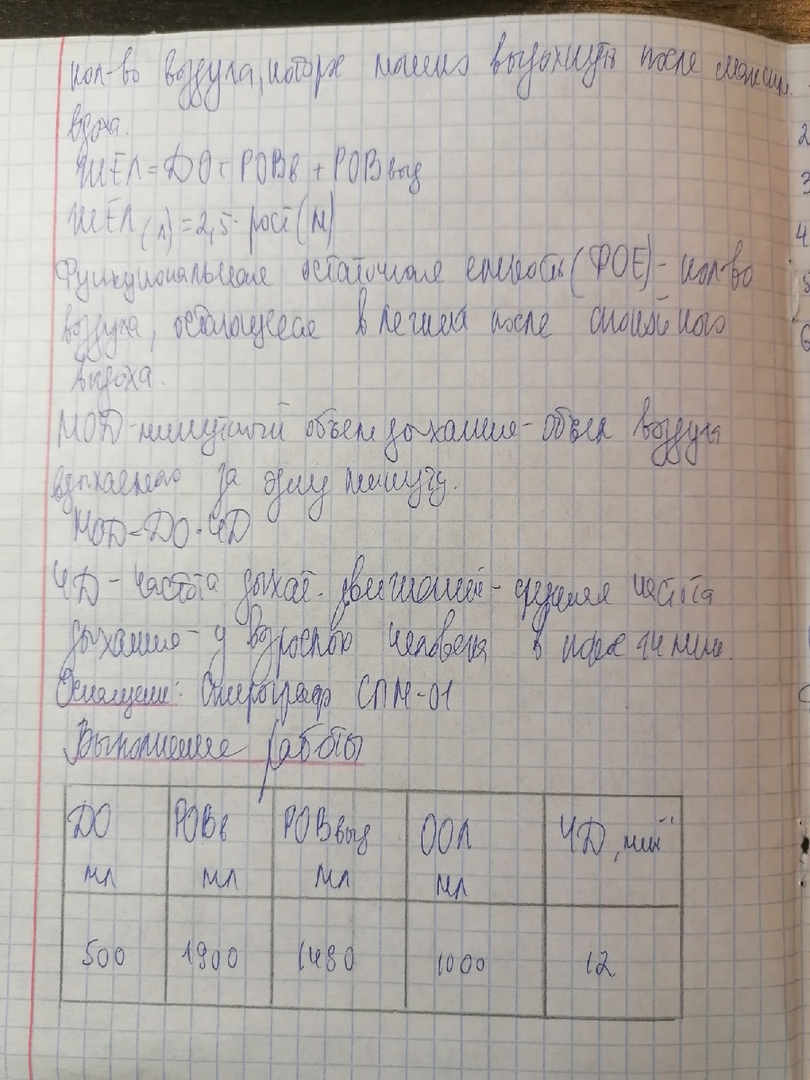 кол-во воздуха, которе можно выдохнуть после максим.
вдоха.
ЖЕЛ = ДО + РОВв + РОВвыд
ЖЕЛ(л) = 2,5 · рост(м)
Функциональная остаточная емкость (ФОЕ) - кол-во
воздуха, остающееся в легких после спокойного
выдоха.
МОД - минутный объем дыхания - объем воздуха
вдыхаемого за одну минуту.
МОД = ДО · ЧД
ЧД - частота дыхат. движений - средняя частота
дыхания - у взрослого человека в покое 14 мин.
Оснащение: Спирограф СПМ-01
Выполнение работы
ДО мл
РОВв мл
РОВвыд мл
ООЛ мл
ЧД, мин⁻¹
500 1900 1480 1000 12
2
3
4
5
6